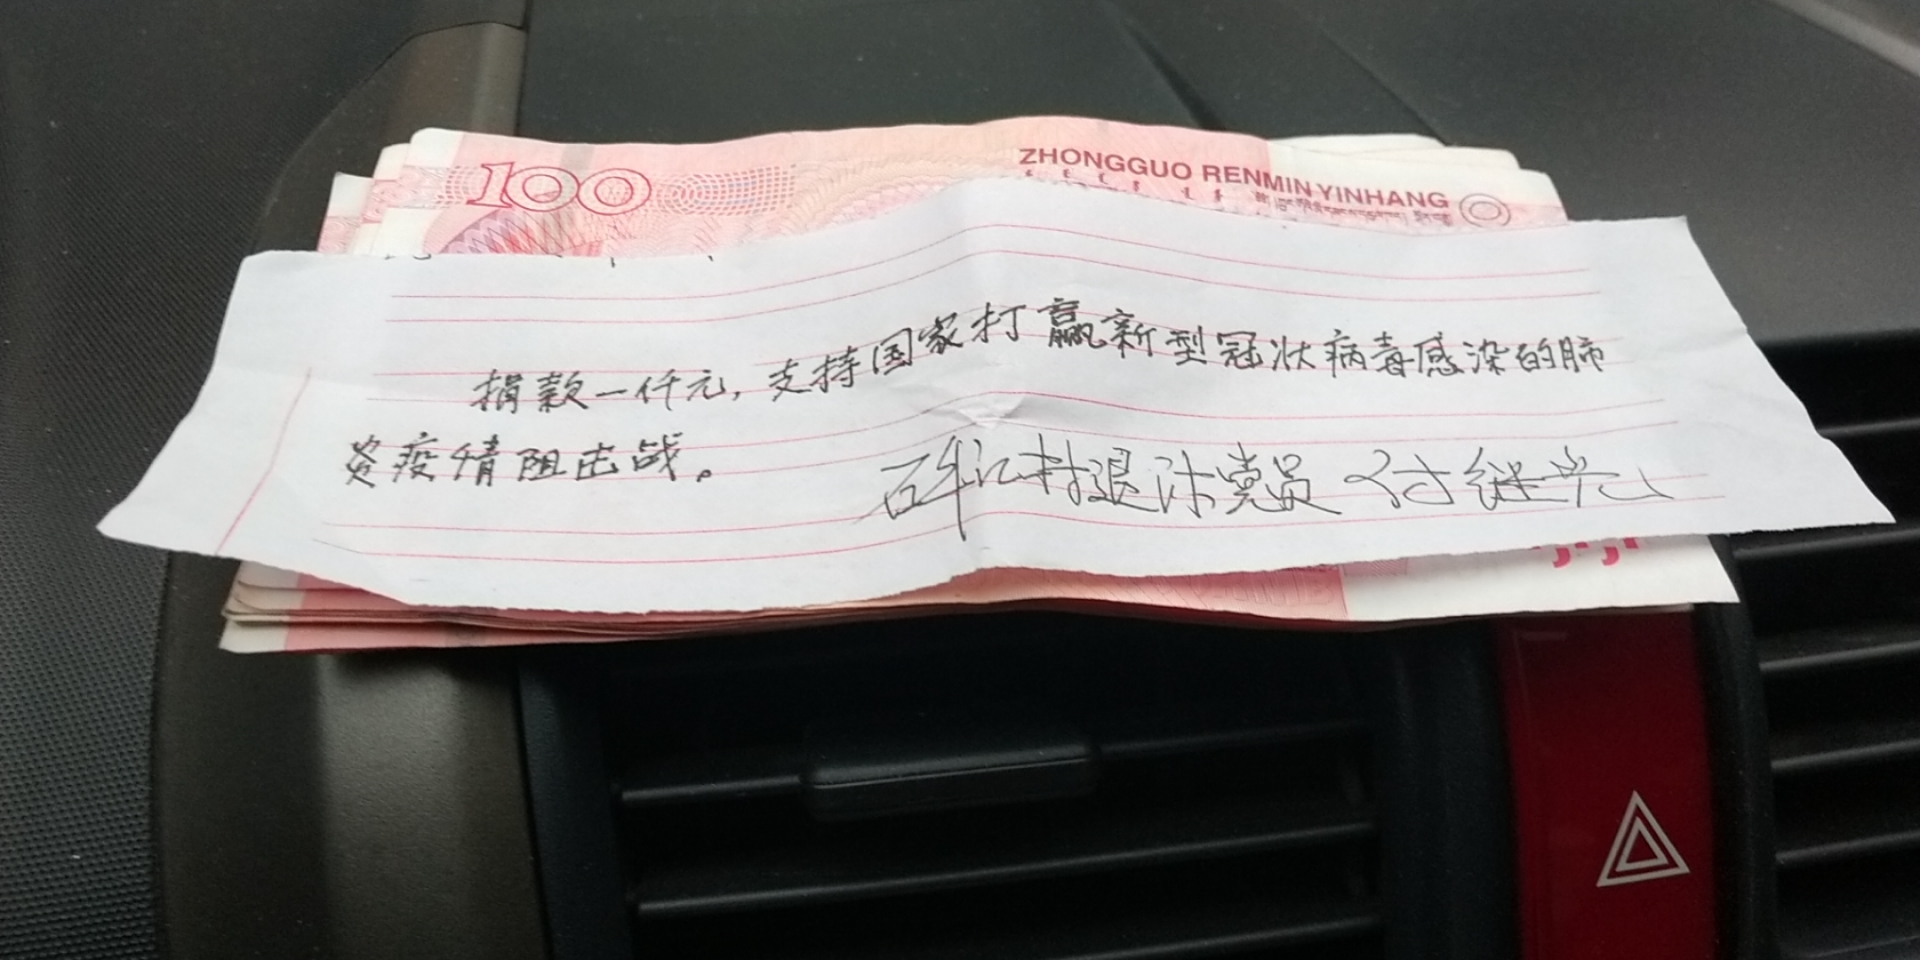 100
ZHONGGUO RENMIN YINHANG
捐款一仟元，支持国家打赢新型冠状病毒感染的肺
炎疫情阻击战。
村退休党员 付继光